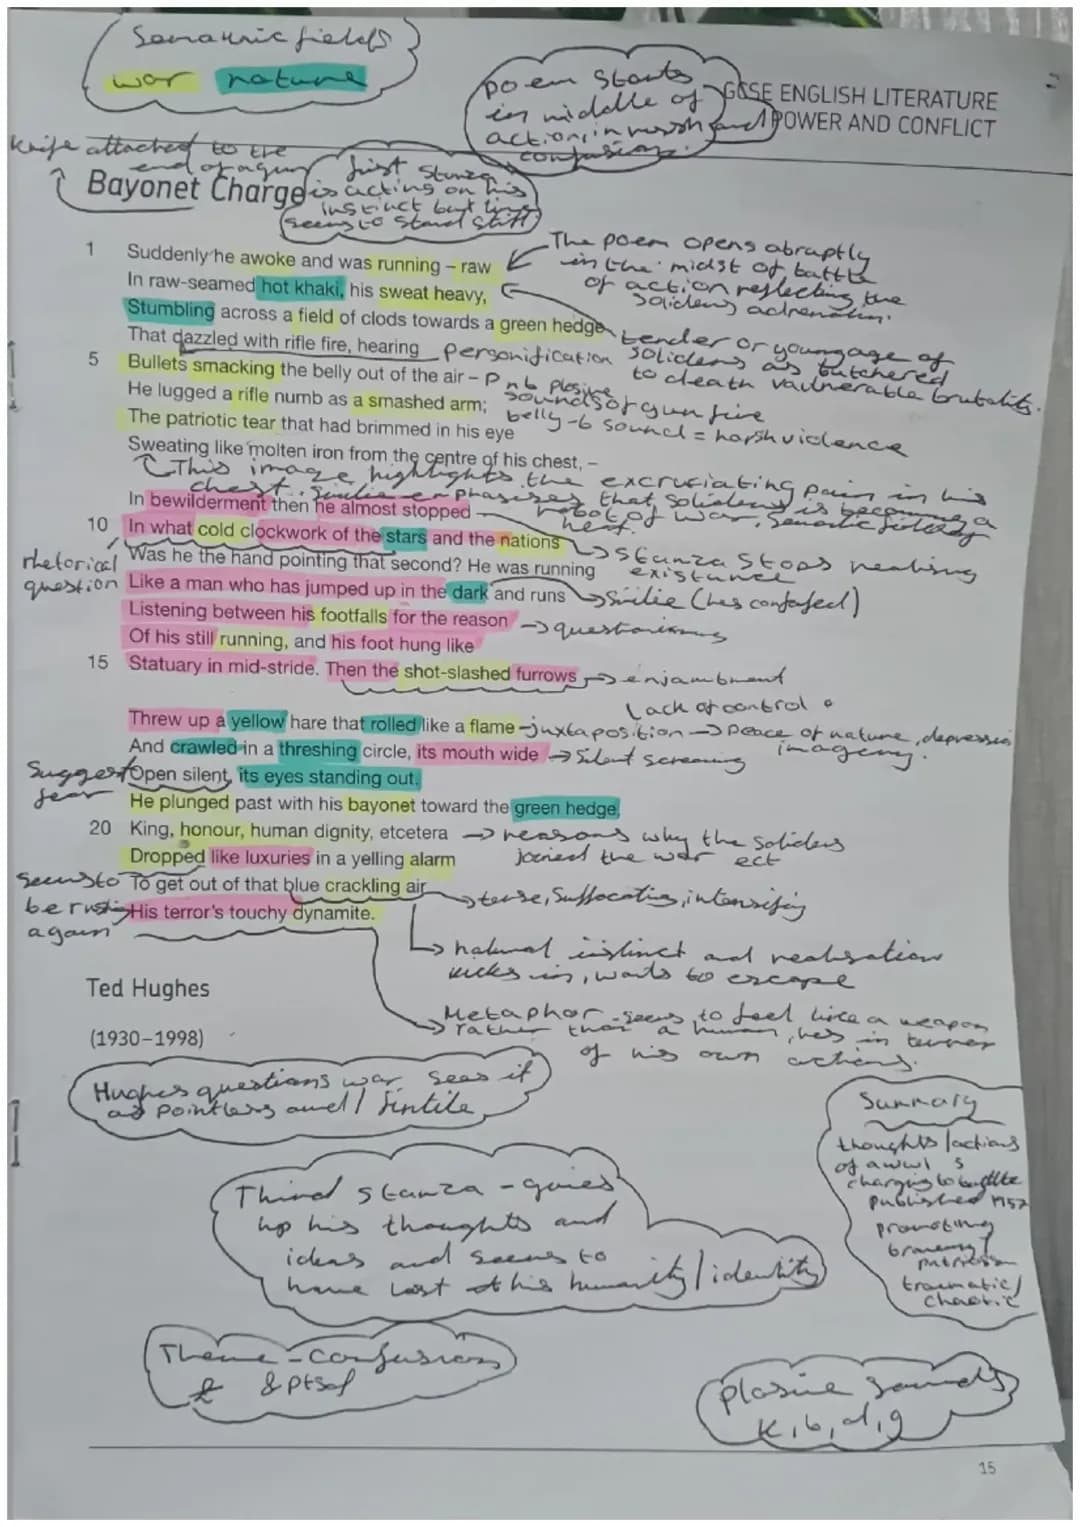 Semantic fields
war nature
poem starts
in middle of
action, in
confusion.
GCSE ENGLISH LITERATURE
POWER AND CONFLICT
Knife attached to the
end of a gun
Bayonet Charge
first stanza
is acting on his
instinct but time
seems to stand still
1 Suddenly he awoke and was running – raw
The poem opens abruptly
in the midst of battle
of action reflecting the
In raw-seamed hot khaki, his sweat heavy,
Stumbling across a field of clods towards a green hedge
tender or young age of
That dazzled with rifle fire, hearing
Personification
to death
5 Bullets smacking the belly out of the air –
Plosive
sounds of gun fire
He lugged a rifle numb as a smashed arm;
belly - b sound = harsh violence
The patriotic tear that had brimmed in his eye
Sweating like molten iron from the centre of his chest, –
This image highlights the excruciating pain in his
chest. becoming a
robot of war,
In bewilderment then he almost stopped
10 In what cold clockwork of the stars and the nations
Stanza stops realising
rhetorical
question
Was he the hand pointing that second? He was running
Like a man who has jumped up in the dark and runs
Listening between his footfalls for the reason
Of his still running, and his foot hung like
15 Statuary in mid-stride. Then the shot-slashed furrows
enjambment
Lack of control
Threw up a yellow hare that rolled like a flame
juxtaposition → peace of nature,
imagery.
And crawled in a threshing circle, its mouth wide
silent screaming
Suggest
fear
Open silent, its eyes standing out.
He plunged past with his bayonet toward the green hedge,
20 King, honour, human dignity, etcetera
→ reasons why the
joined the war ect
Dropped like luxuries in a yelling alarm
seems to
again
To get out of that blue crackling air
tense, suffocating,
His terror's touchy dynamite.
natural instinct and realisation
kicks in, wants to escape
Ted Hughes
(1930–1998)
Metaphor - seems to feel like a weapon
rather than a human, hes in terror
of his own actions.
Hughes questions war. Sees it
as pointless and /
Summary
thoughts / actions
of a ww1
charging to battle
published 1957
promoting
bravery /
traumatic /
chaotic
Third stanza -
up his thoughts and
ideas and seems to
have lost his humanity / identity
Theme - confusion
Plosive sounds
k, b, d, g
15